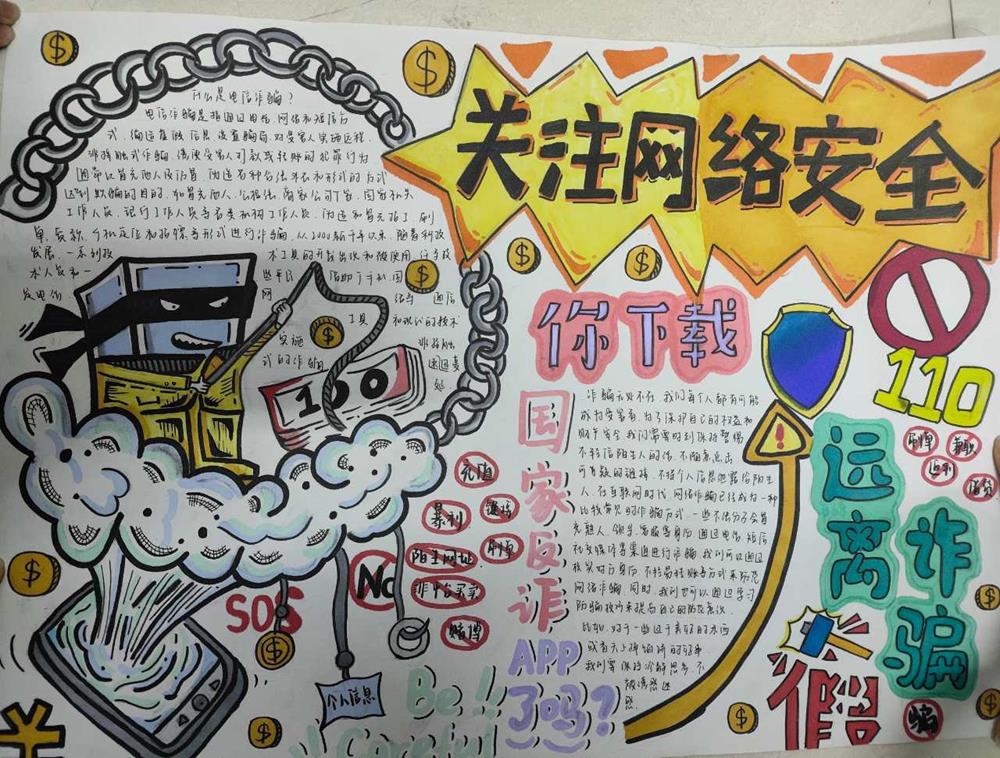 关注网络安全
什么是电信诈骗?
电信诈骗是指通过电话、网络和短信方
式,编造虚假信息,设置骗局,对受害人实施远程
非接触式诈骗,诱使受害人打款或转账的犯罪行为
通常以冒充他人及仿冒、伪造各种合法外衣和形式的方式
达到欺骗的目的,如冒充他人、公检法、商家公司厂家、国家机关
工作人员、银行工作人员等各类机构工作人员,伪造和冒充招工、刷
单、贷款、手机定位和招嫖等形式进行诈骗,从2000年新千年以来,随着科技
发展,一系列技
术工具的开发出现和被使用,
术人员和一
借助于手机、固
网
络等通信
工具
和现代的技术
实施
非接触
式的诈骗
100
SOS
No
充值
暴利
陌生网址
刷单
非平台买卖
赌博
个人信息
Be
Careful!!
你下载
国家反诈
APP
了吗?
诈骗无处不在,我们每个人都有可能
成为受害者,为了保护自己的权益和
财产安全,我们需要时刻保持警惕
不轻信陌生人的话,不随意点击
可疑的链接,不将个人信息泄露给陌生
人,在互联网时代,网络诈骗已经成为一种
比较常见的诈骗方式,一些不法分子会冒
充熟人、领导、客服等身份,通过电话、短信
社交媒体等渠道进行诈骗,我们可以通过
核实对方身份、不轻易转账等方式来防范
网络诈骗,同时,我们也可以通过学习
防骗技巧来提高自己的防范意识。
比如,对于一些过于美好的东西
或者天上掉馅饼的好事
我们要保持冷静思考,不
被诱惑迷
惑。
110
远离
诈骗
刷单
兼职
返利
借贷
假
骗